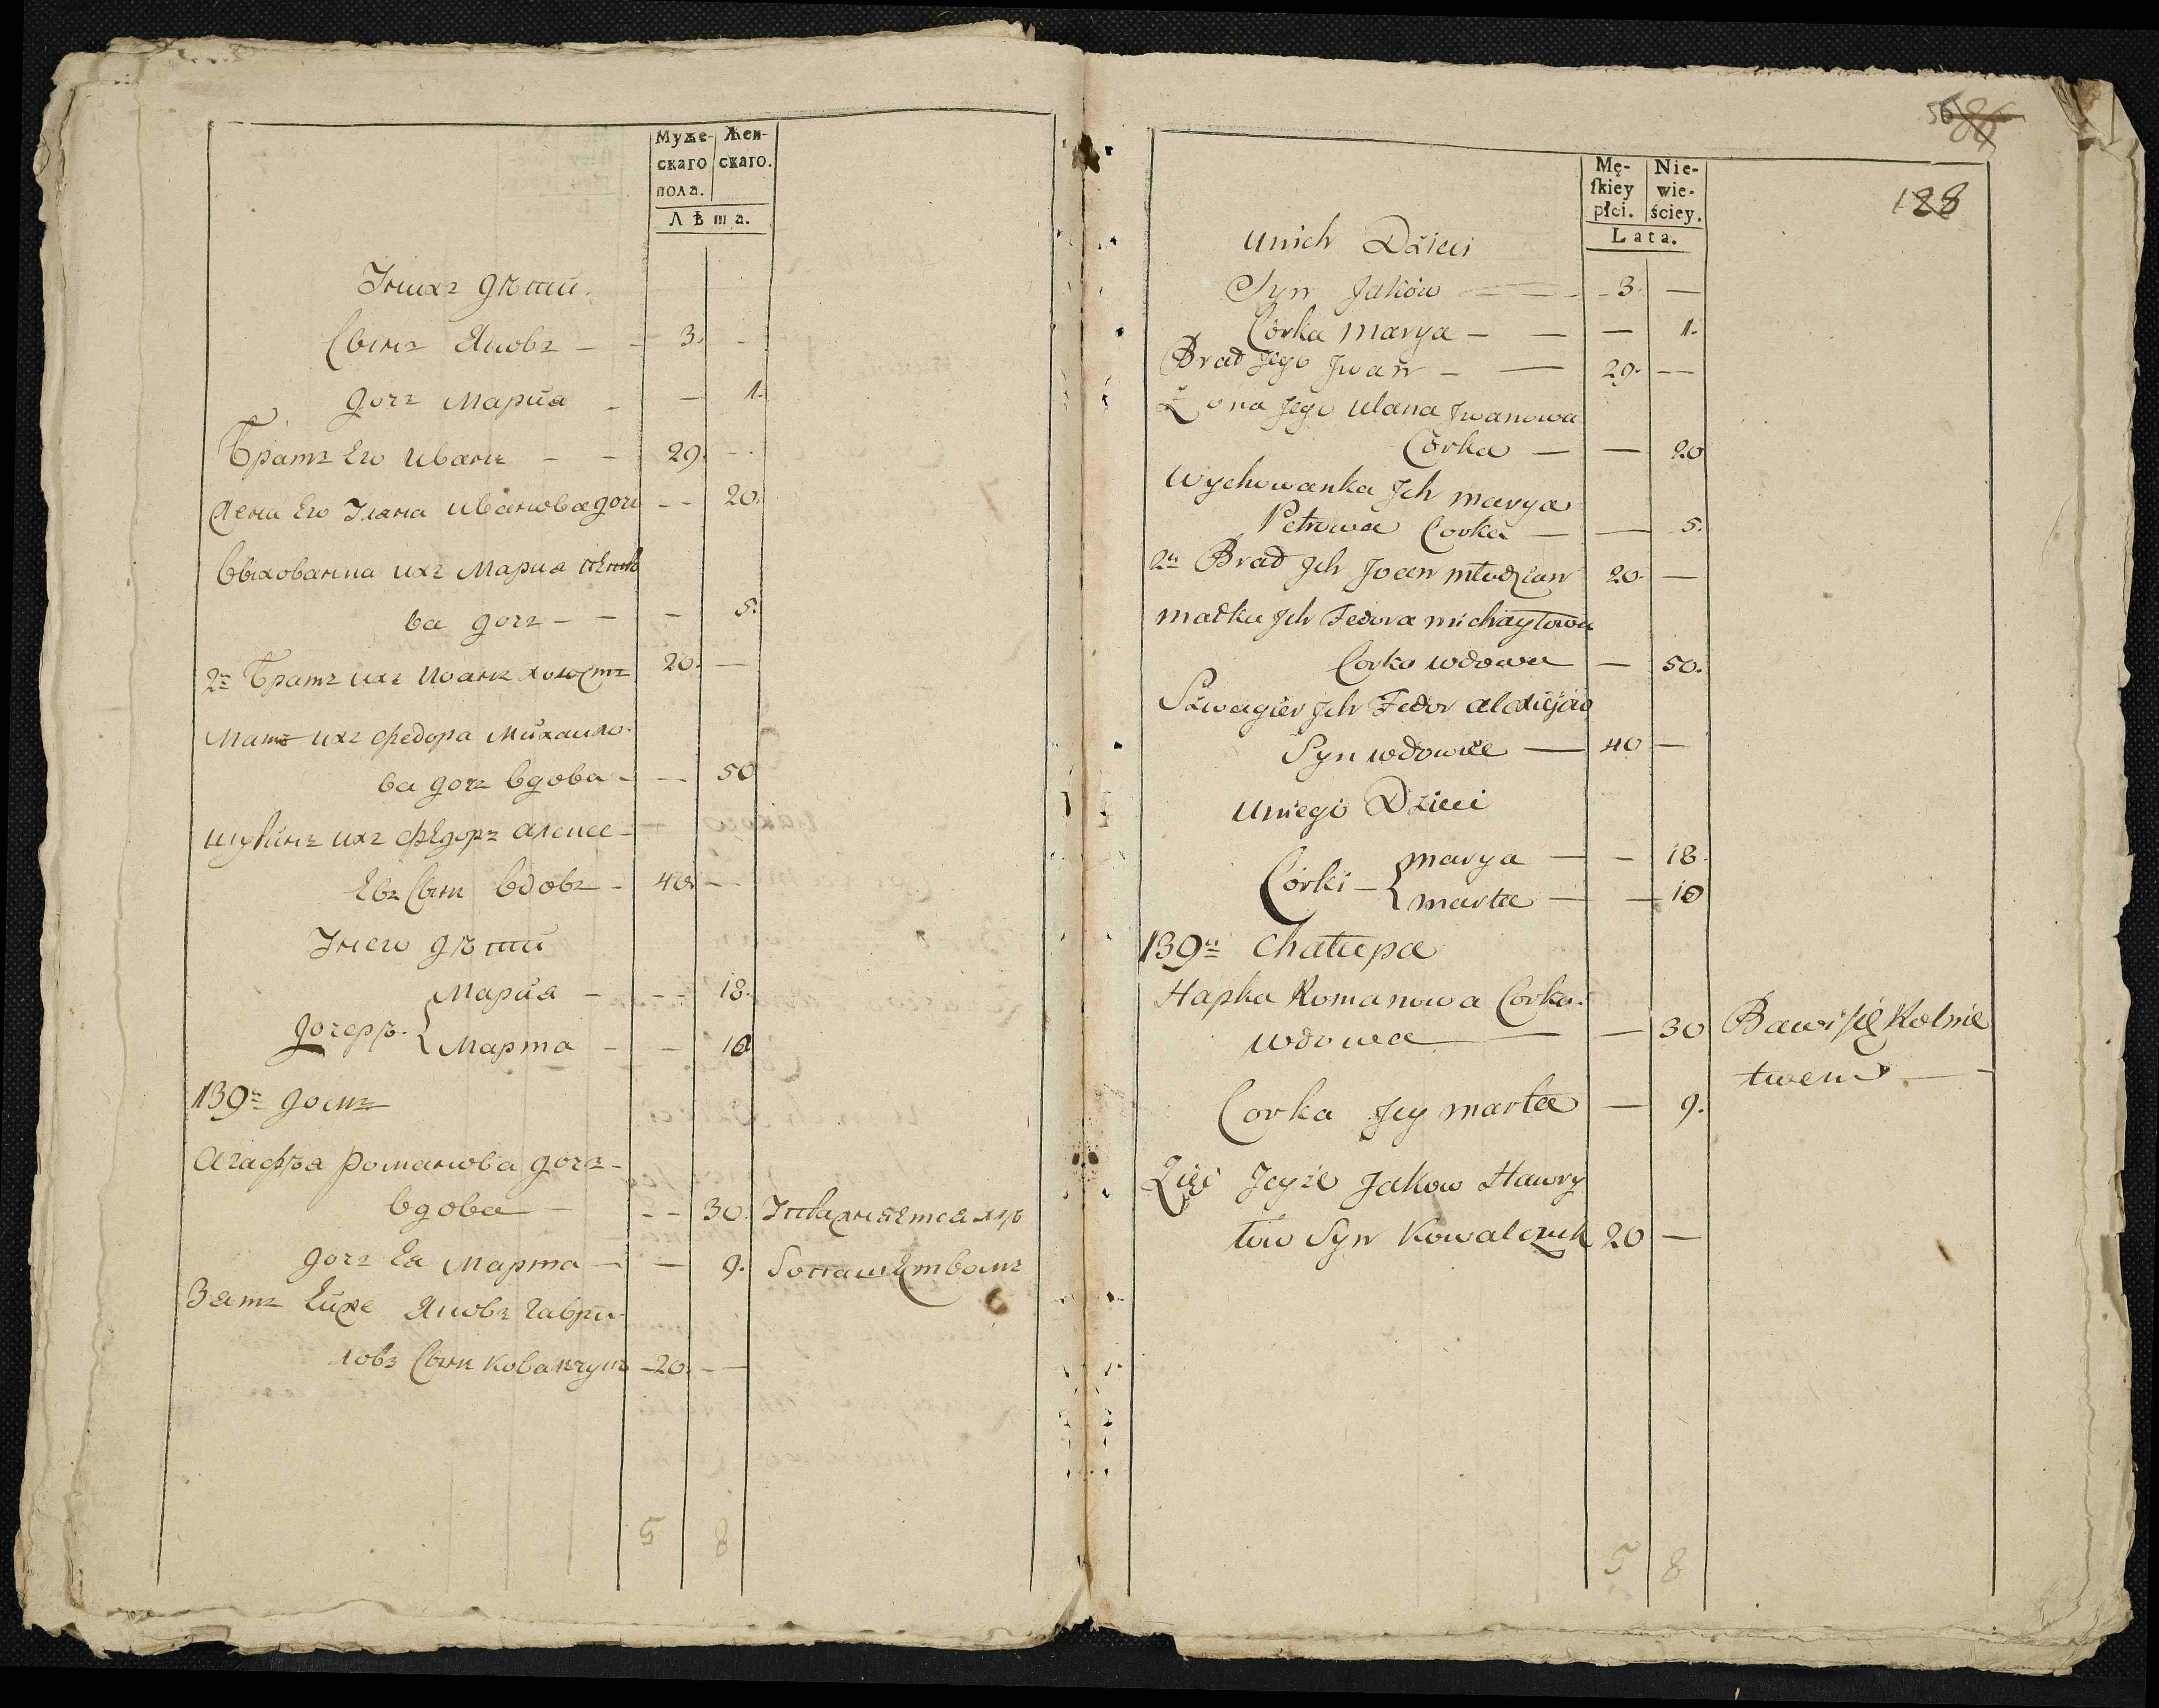 Муже- Жен-
скаго скаго.
пола.
Лѣта.
Унихъ дѣти
Сынъ Яковъ – – 3. –
дочъ Мария – – 1.
Братъ Его Иванъ – – 29. –
Жена Его Уляна Иванова дочъ – – 20.
Выхованка ихъ Мария Петро
ва дочъ – – – 5.
2й Братъ ихъ Иоанъ холостъ 20. –
Мать ихъ Федора Михайло
ва дочъ вдова – – 50
шуринъ ихъ Федоръ Алексе-
евъ Сынъ вдовъ – 40 –
Унего дѣти
Мария – – 18.
дочерѣ {
Марта – – 10
139й домъ
Агафѣя Романова дочъ –
вдова – – – 30. Упражняется хлѣ
дочъ Ея Марта – – 9. бопашЕтвомъ
Зять Ейже Яковъ Гаври-
ловъ Сынъ Ковалчукъ – 20. –
5 8
56 86
128
Mę- Nie-
ſkiey wie-
płci. ściey.
Lata.
Unich Dzieci
Syn Jaków – – 3. –
Córka Marya – – – 1.
Brad Jego Jwan – – 29. –
Żona Jego Ulana Jwanowa
Córka – – 20
Wychowanka Jch Marya
Petrowa Corka – – 5.
2й Brad Jch Joan młodzian 20. –
Madka Jch Fedora Michayłowa
Corka wdowa – 50.
Szwagier Jch Fedor Alexiejów
Syn wdowiec – 40 –
Uniego Dzieci
Marya – – 18.
Córki – {
Marta – – 10
139й Chałupa
Hapka Romanowa Corka.
wdowa – – 30 Bawi się Rolnic
twem –
Corka Jey Marta – 9.
Zięć Jeyże Jakow Hawry
łów Syn Kowalczuk 20 –
5 8